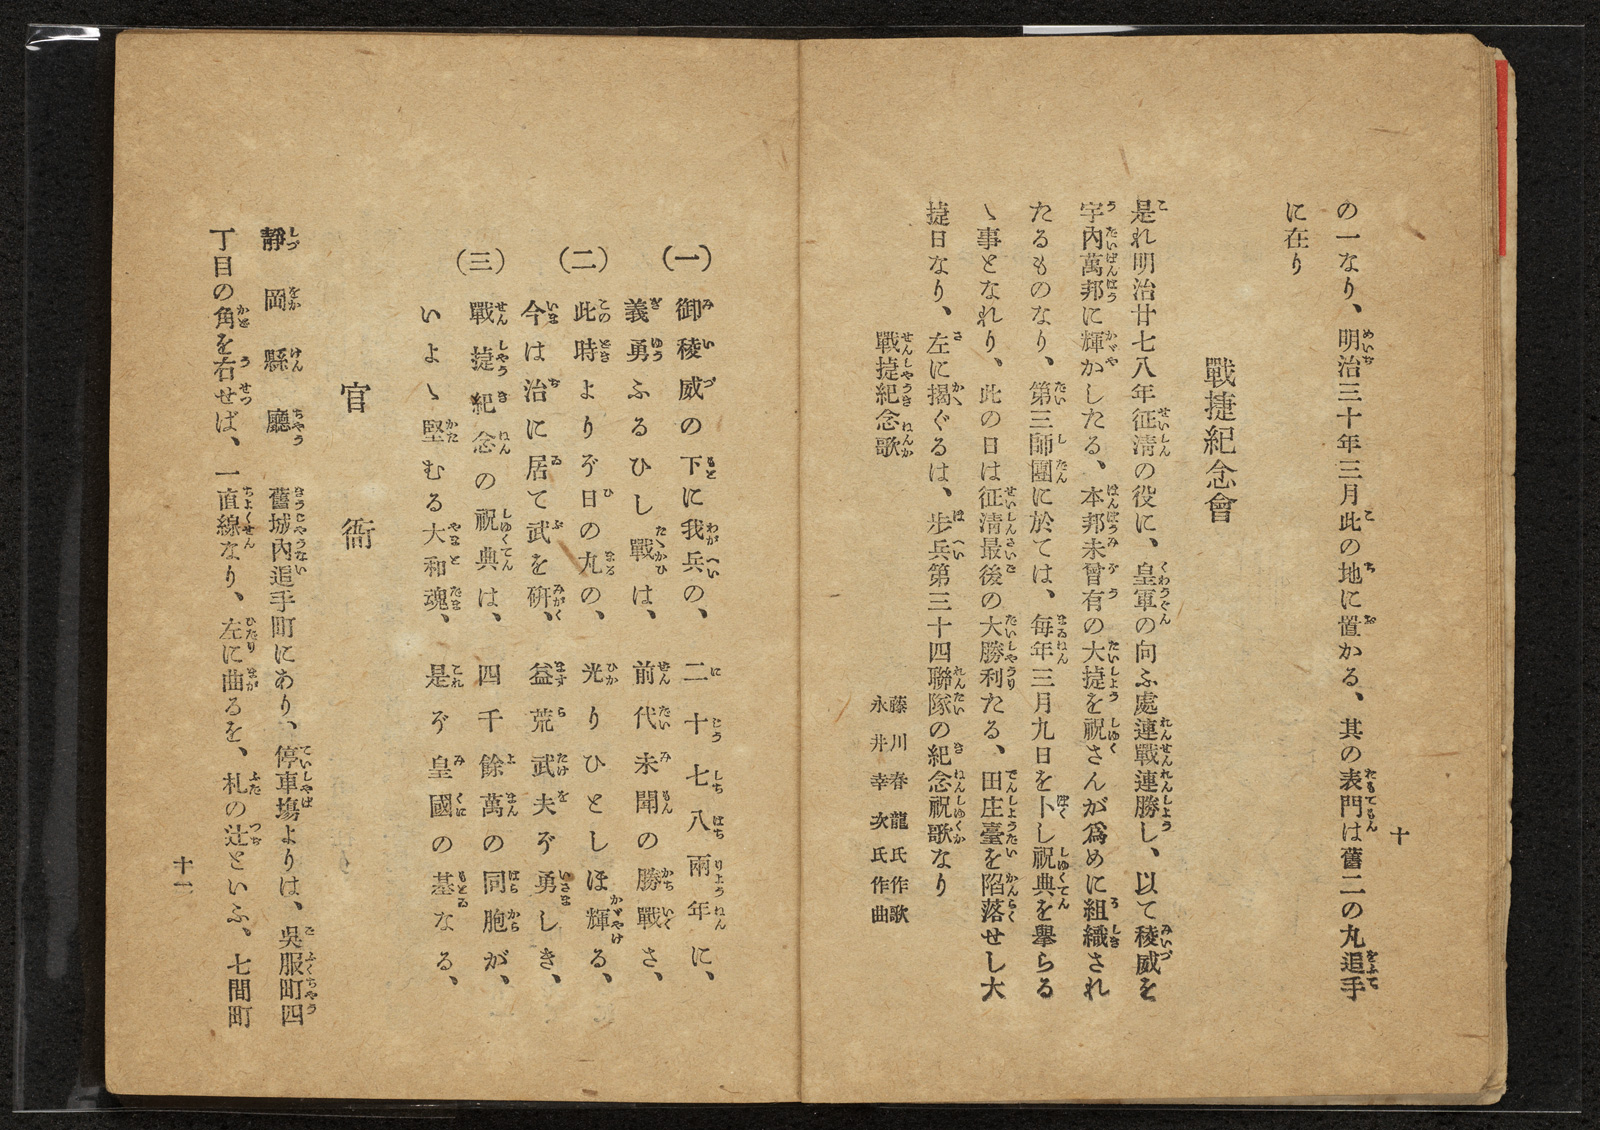 十
の一なり、明治三十年三月此の地に置かる、其の表門は舊二の丸追手
に在り
戰捷紀念會
是れ明治廿七八年征淸の役に、皇軍の向ふ處連戰連勝し、以て稜威を
宇內萬邦に輝かしたる、本邦未曾有の大捷を祝さんが爲めに組織され
たるものなり、第三師團に於ては、每年三月九日を卜し祝典を擧らる
ヽ事となれり、此の日は征淸最後の大勝利たる、田庄臺を陷落せし大
捷日なり、左に揭ぐるは、步兵第三十四聯隊の紀念祝歌なり
戰捷紀念歌
藤川春龍氏作歌
永井幸次氏作曲
(一)御稜威の下に我兵の、二十七八兩年に、
義勇ふるひし戰は、前代未聞の勝戰さ、
(二)此時よりぞ日の丸の、光りひとしほ輝る、
今は治に居て武を硏、益荒武夫ぞ勇しき、
(三)戰捷紀念の祝典は、四千餘萬の同胞が、
いよヽ堅むる大和魂、是ぞ皇國の基なる、
官衙
靜岡縣廳 舊城內追手町にあり、停車塲よりは、吳服町四
丁目の角を右せば、一直線なり、左に曲るを、札の辻といふ、七間町
十一